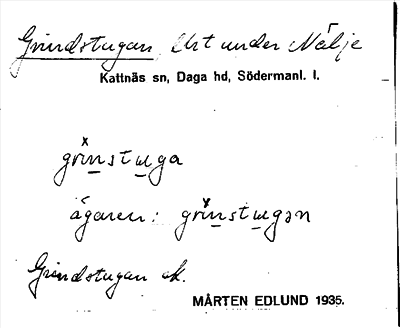 Grindstugan, Urt under Nälje
Kattnäs sn, Daga hd, Södermanl. l.
grinstuga
ägaren: grinstugən
Grindstugan ck.
MÅRTEN EDLUND 1935.